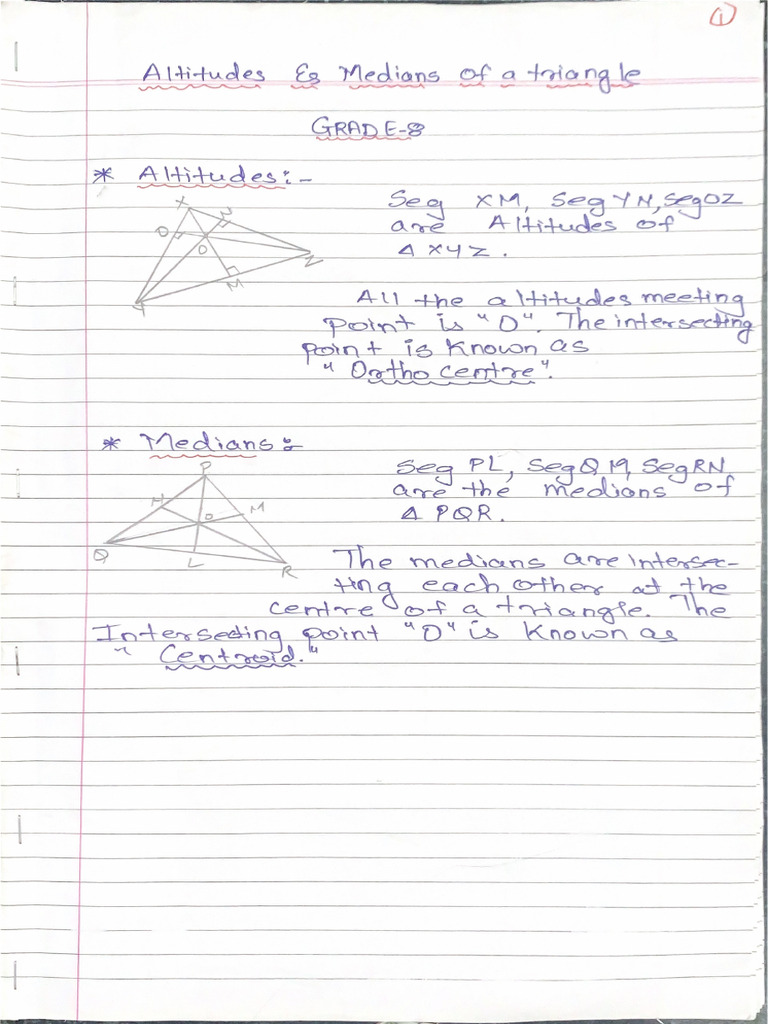 1
Altitudes & Medians of a triangle
GRADE-8
* Altitudes:-
Seg XM, Seg YN, Seg OZ
are Altitudes of
Δ XYZ.
X
N
O
O
Z
M
Y
All the altitudes meeting
point is "O". The intersecting
point is known as
"Ortho centre".
* Medians:-
Seg PL, Seg QM, Seg RN
are the medians of
Δ PQR.
P
N
M
O
Q
L
R
The medians are intersec-
ting each other at the
centre of a triangle. The
Intersecting point "O" is known as
"Centroid."